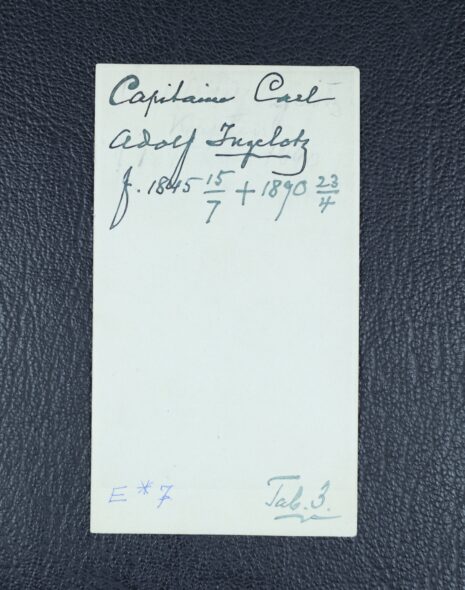 Capitaine Carl
Adolf Ingelotz
f. 1845 15/7 + 1890 23/4
E *7
Tab. 3.